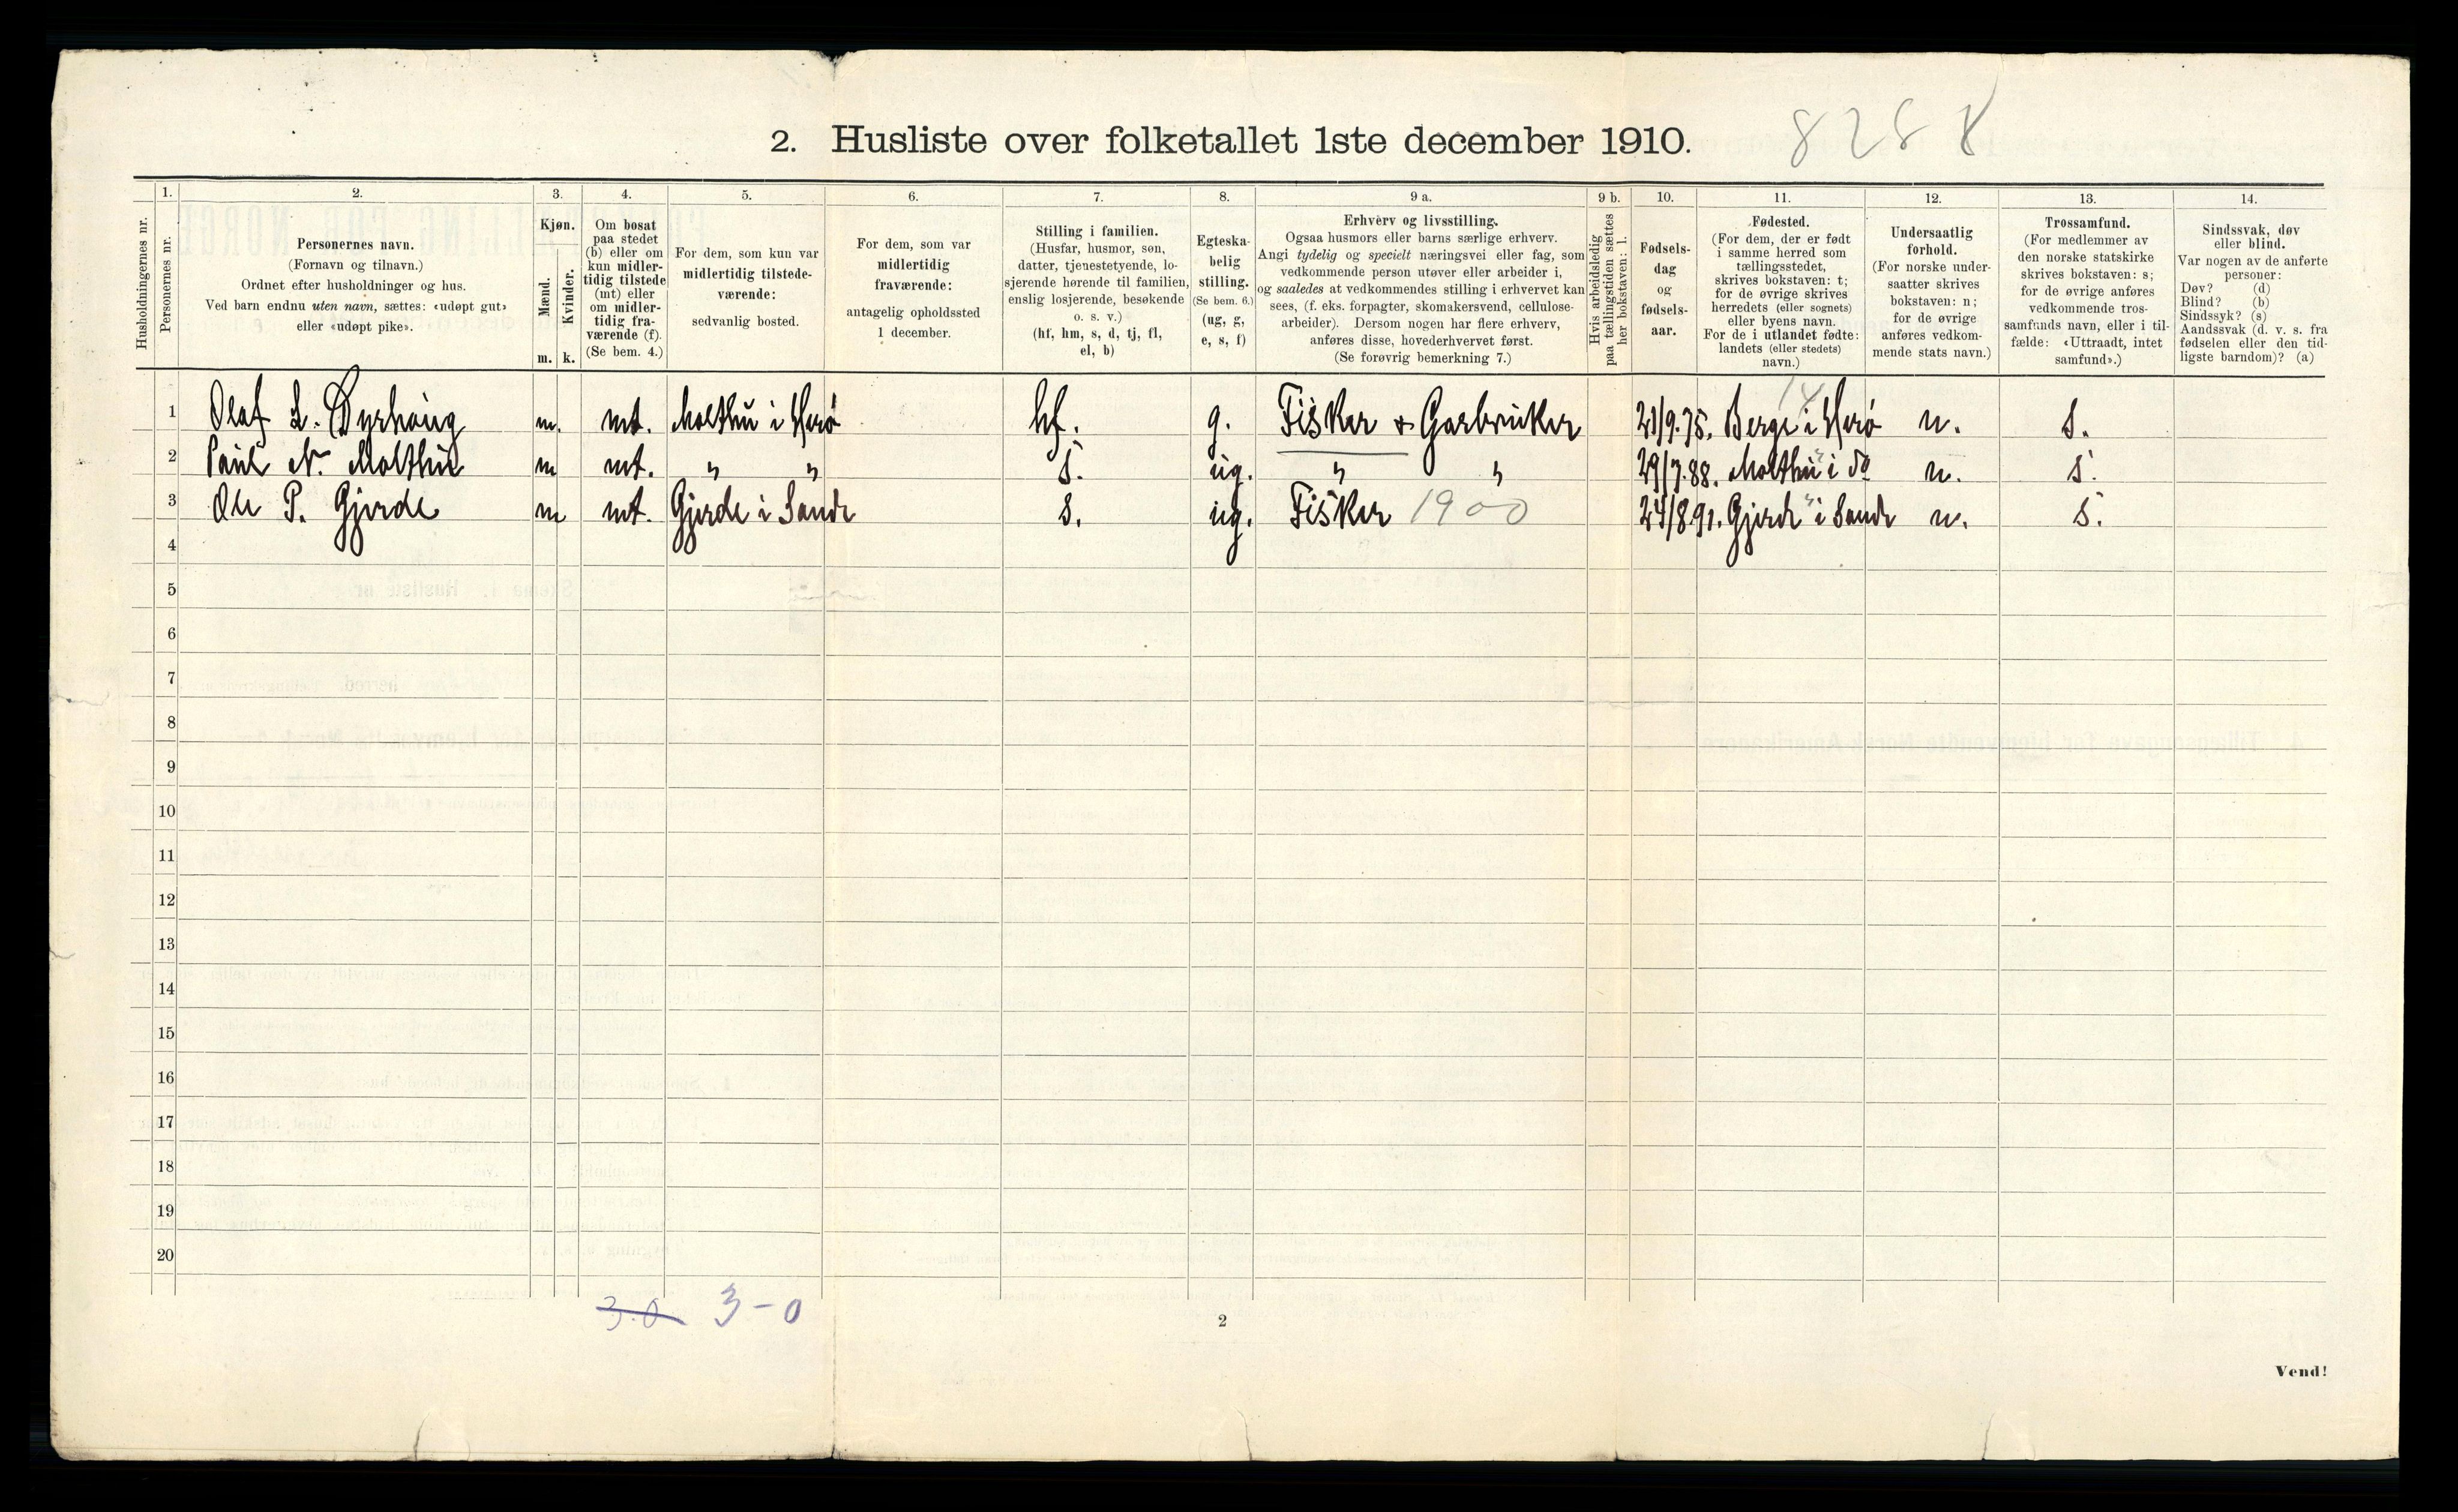 2. Husliste over folketallet 1ste december 1910.
828 8
Husholdningernes nr.
1.
Personernes nr.
2.
Personernes navn.
(Fornavn og tilnavn.)
Ordnet efter husholdninger og hus.
Ved barn endnu uten navn, sættes: «udøpt gut»
eller «udøpt pike».
3.
Kjøn.
Mænd.
Kvinder.
m. k.
4.
Om bosat
paa stedet
(b) eller om
kun midler-
tidig tilstede
(mt) eller
om midler-
tidig fra-
værende (f).
(Se bem. 4.)
5.
For dem, som kun var
midlertidig tilstede-
værende:
sedvanlig bosted.
6.
For dem, som var
midlertidig
fraværende:
antagelig opholdssted
1 december.
7.
Stilling i familien.
(Husfar, husmor, søn,
datter, tjenestetyende, lo-
sjerende hørende til familien,
enslig losjerende, besøkende
o. s. v.)
(hf, hm, s, d, tj, fl,
el, b)
8.
Egteska-
belig
stilling.
(Se bem. 6.)
(ug, g,
e, s, f)
9 a.
Erhverv og livsstilling.
Ogsaa husmors eller barns særlige erhverv.
Angi tydelig og specielt næringsvei eller fag, som
vedkommende person utøver eller arbeider i,
og saaledes at vedkommendes stilling i erhvervet kan
sees, (f. eks. forpagter, skomakersvend, cellulose-
arbeider). Dersom nogen har flere erhverv,
anføres disse, hovederhvervet først.
(Se forøvrig bemerkning 7.)
9 b.
Hvis arbeidsledig
paa tællingstiden sættes
her bokstaven: l.
10.
Fødsels-
dag
og
fødsels-
aar.
11.
Fødested.
(For dem, der er født
i samme herred som
tællingsstedet,
skrives bokstaven: t;
for de øvrige skrives
herredets (eller sognets)
eller byens navn.
For de i utlandet fødte:
landets (eller stedets)
navn.)
12.
Undersaatlig
forhold.
(For norske under-
saatter skrives
bokstaven: n;
for de øvrige
anføres vedkom-
mende stats navn.)
13.
Trossamfund.
(For medlemmer av
den norske statskirke
skrives bokstaven: s;
for de øvrige anføres
vedkommende tros-
samfunds navn, eller i til-
fælde: «Uttraadt, intet
samfund».)
14.
Sindssvak, døv
eller blind.
Var nogen av de anførte
personer:
Døv? (d)
Blind? (b)
Sindssyk? (s)
Aandssvak (d. v. s. fra
fødselen eller den tid-
ligste barndom)? (a)
14
1 Olaf L. m. mt. Molthu i Herø hf. g. Fisker + Garbruker 21/9.75. Berge i Herø n. s.
2 Paul N. Molthu m mt. " " s. ug. " " 29/7.88. Molthu i do n. s.
3 Ole P. Gjerde m mt. Gjerde i Sande s. ug. Fisker 1900 24/8.91. Gjerde i Sande n. s.
4
5
6
7
8
9
10
11
12
13
14
15
16
17
18
19
20
3.0 3-0
2
Vend!